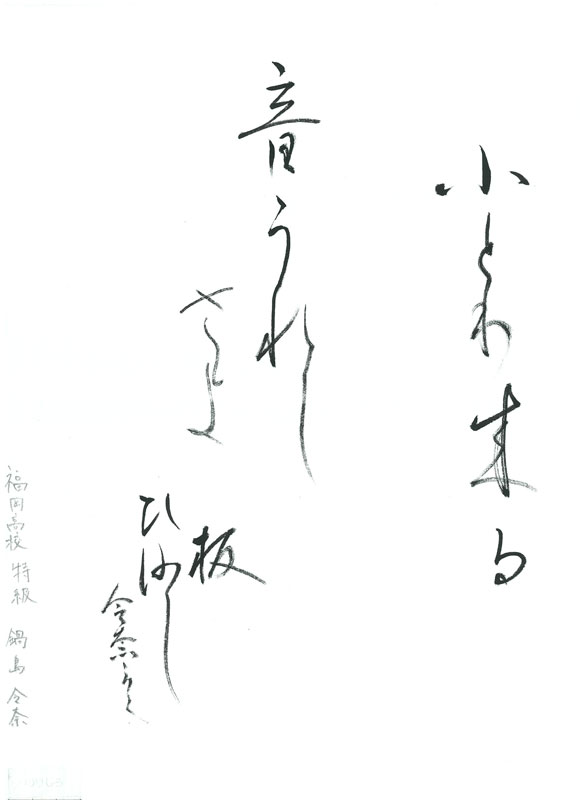 小とり来る
音うれし
さよ
板
ひさし
令奈かく
福岡高校 特級 鍋島 令奈